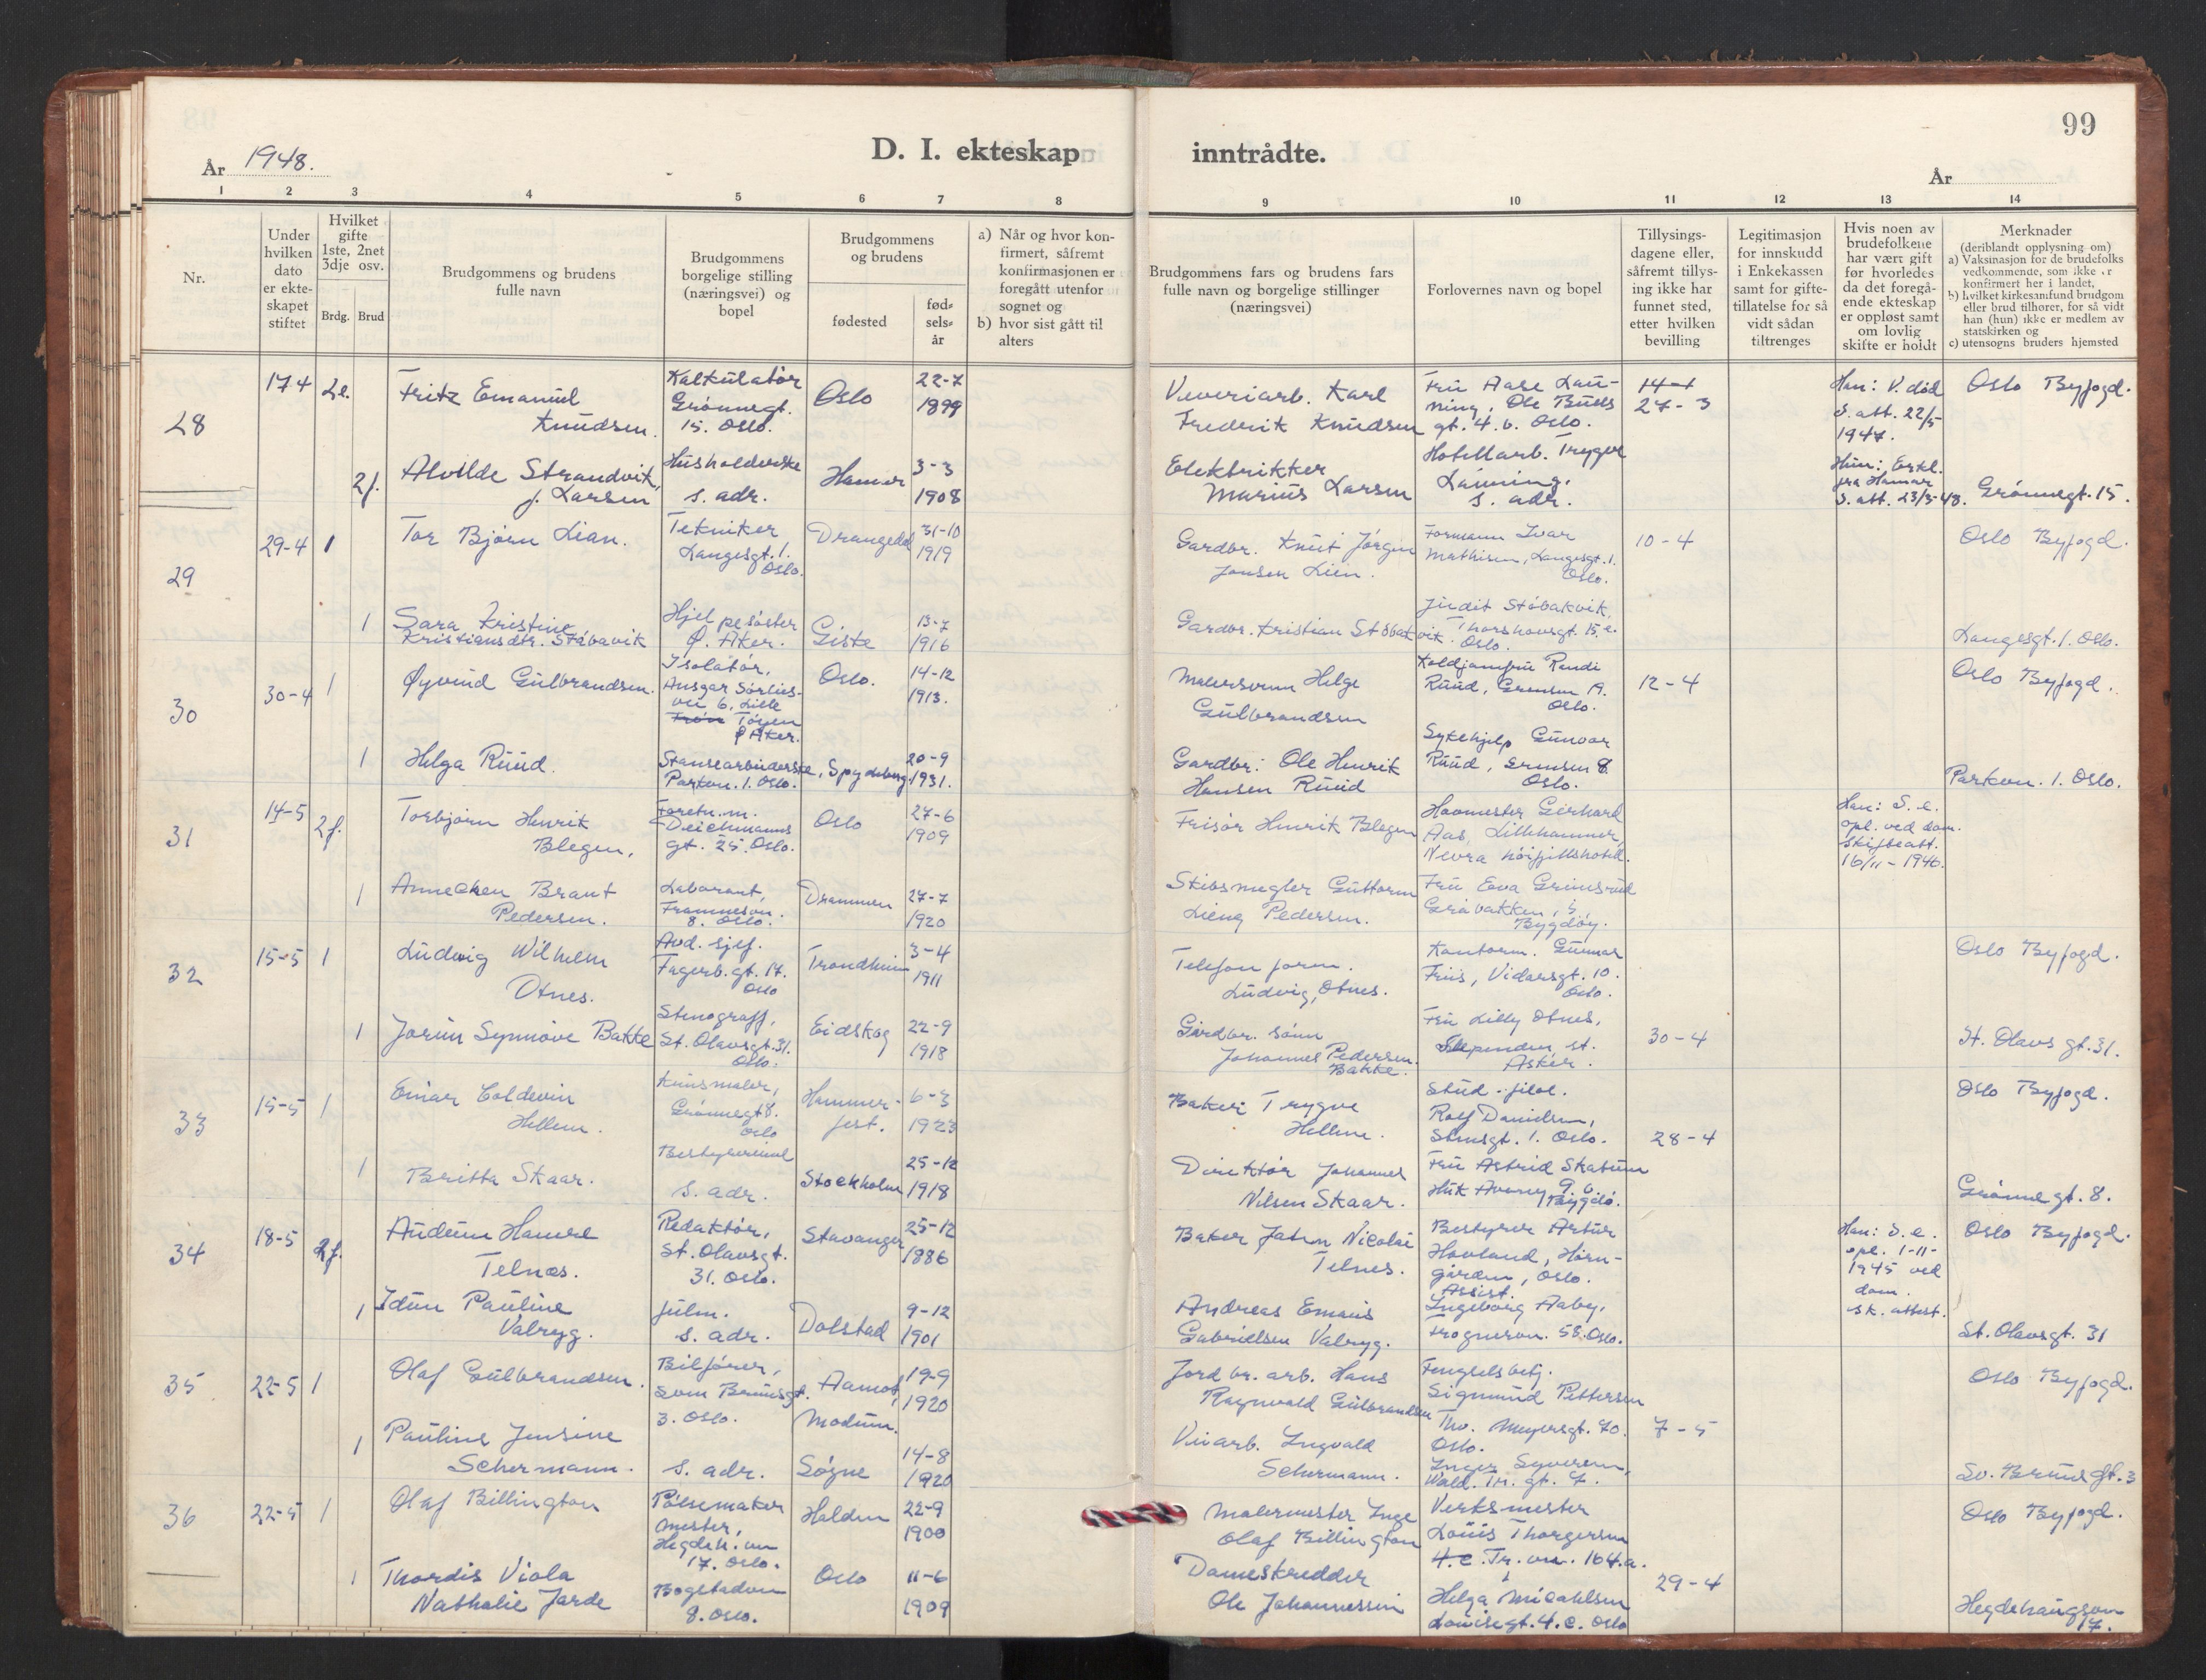 99
År 1948.
D. I. ekteskap inntrådte.
År
1 2 3 4 5 6 7 8 9 10 11 12 13 14
Nr.
Under
hvilken
dato
er ekte-
skapet
stiftet
Hvilket
gifte
1ste, 2net
3dje osv.
Brdg. Brud
Brudgommens og brudens
fulle navn
Brudgommens
borgelige stilling
(næringsvei) og
bopel
Brudgommens
og brudens
fødested
fød-
sels-
år
a) Når og hvor kon-
firmert, såfremt
konfirmasjonen er
foregått utenfor
sognet og
b) hvor sist gått til
alters
Brudgommens fars og brudens fars
fulle navn og borgelige stillinger
(næringsvei)
Forlovernes navn og bopel
Tillysings-
dagene eller,
såfremt tillys-
ing ikke har
funnet sted,
etter hvilken
bevilling
Legitimasjon
for innskudd
i Enkekassen
samt for gifte-
tillatelse for så
vidt sådan
tiltrenges
Hvis noen av
brudefolkene
har vært gift
før hvorledes
da det foregå-
ende ekteskap
er oppløst samt
om lovlig
skifte er holdt
Merknader
(deriblandt opplysning om)
a) Vaksinasjon for de brudefolks
vedkommende, som ikke er
konfirmert her i landet,
b) hvilket kirkesamfund brudgom
eller brud tilhører, for så vidt
han (hun) ikke er medlem av
statskirken og
c) utensogns bruders hjemsted
28
17-4
2e.
Fritz Emanuel
Knudsen.
Kalkulatør
Grønnegt.
15. Oslo.
Oslo
22-7
1899
Veveriarb. Karl
Fredrik Knudsen
Fru Aase Lan-
ning, Ole Bulls
gt. 4. b. Oslo.
27-3
Han: V. død
S. att. 22/5
1947.
Oslo Byfogd.
2f.
Alvilde Strandvik,
f. Larsen
Husholderske
s. adr.
Hamar
3-3
1908
Elektrikker
Marius Larsen
Hotellarb. Trygve
Lanning,
s. adr.
Hun:
fra Hamar
S. att. 23/3-48.
Grønnegt. 15.
29
29-4
1
Tor Bjørn Lian.
Tekniker
Langesgt. 1.
Oslo.
Drangedal
31-10
1919
Gardbr. Knut Jørgen
Jonsen Lien.
Formann Ivar
Mathisen, Langesgt. 1.
Oslo.
10-4
Oslo Byfogd.
1
Sara Kristine
Kristiansdtr. Støbavik
Hjelpesøster
Ø. Aker.
Giske
13-7
1916
Gardbr. Kristian Støbakvik.
Judit Støbakvik,
Thorshovsgt. 15. e.
Oslo.
Langesgt. 1. Oslo.
30
30-4
1
Øyvind Gulbrandsen.
Isolatør,
Ansgar Sørlies-
vei 6, Lille
Tøyen
Ø Aker.
Oslo.
14-12
1913.
Malersvenn Helge
Gulbrandsen
Koldjomfru Randi
Ruud, Grensen 19.
Oslo.
12-4
Oslo Byfogd.
1
Helga Ruud.
Stansearbeiderske,
Parkvn. 1. Oslo.
Spydeberg
20-9
1931.
Gardbr: Ole Henrik
Hansen Ruud
Sykehjelp Gunvor
Ruud, Grensen 8.
Oslo.
Parkvn. 1. Oslo.
31
14-5
2f.
Torbjørn Henrik
Blegen,
Foretn. m.
Deichmanns
gt. 25. Oslo.
Oslo
27-6
1909
Frisør Henrik Blegen
Hovmester Gerhard
Aas, Lillehammer,
Nevra høifjellshotel.
Han: S. e.
opl. ved dom.
Skifteatt.
16/11-1946.
1
Annechen Brant
Pedersen.
Laborant,
Framnesvn.
8. Oslo.
Drammen
27-7
1920
Skibsmegler Guttorm
Lieng Pedersen.
Fru Eva Grimsrud
Gråbakken,
Bygdøy.
32
15-5
1
Ludvig Wilhelm
Otnes.
Avd. sjef.
Fagerb. gt. 17.
Oslo
Trondheim
3-4
1911
Telefon form.
Ludvig, Otnes.
Kontorm. Gunnar
Friis, Vidarsgt. 10.
Oslo.
Oslo Byfogd.
1
Jorun Synnøve Bakke
Stenograf,
St. Olavsgt. 31.
Oslo.
Eidskog
22-9
1918
Gårdbr. sønn
Johannes Pedersen
Bakke.
Fru Lilly Otnes,
Slependen st.
Asker.
30-4
St. Olavs gt. 31.
33
15-5
1
Einar Coldevin
Hellem.
Kunsmaler,
Grønnegt 8.
Oslo
Hammer-
fest.
6-3
1923
Baker Trygve
Hellem.
Stud. filol.
Rolf Danielsen,
Stensgt. 1. Oslo.
28-4
Oslo Byfogd.
1
Britta Skaar.
s. adr.
Stockholm
25-12
1918
Direktør Johannes
Nilsen Skaar.
Fru Astrid Skatum
Huk Aveny 9 b
Bygdø.
Grønne gt. 8.
34
18-5
2f.
Audun Hamre
Telnæs.
Redaktør,
St. Olavsgt.
31. Oslo.
Stavanger
25-12
1886
Baker Jahn Nicolai
Telnes.
Bestyrer Artur
Hovland, Horn-
gården, Oslo.
Han: S. e.
opl. 1-11-
1945 ved
dom.
sk. attest.
Oslo Byfogd.
1
Idun Pauline
Valryg.
s. adr.
Dolstad
9-12
1901
Andreas Emaus
Gabrielsen Valryg.
Assist.
Ingeborg Aaby,
Frognervn. 58. Oslo.
St. Olavsgt. 31
35
22-5
1
Olaf Gulbrandsen.
Bilfører,
Sven Brunsgt.
3. Oslo.
Aamot,
Modum.
19-9
1920
Jordbr. arb. Hans
Ragnvald Gulbrandsen
Fengselsbetj.
Sigmund Pettersen
Thv. Meyersgt. 70.
Oslo.
7-5
Oslo Byfogd.
1
Pauline Jensine
Schermann.
s. adr.
Søgne
14-8
1920
Veiarb. Ingvald
Schermann.
Inger Syversen,
Wald. Th. gt. 7.
Sv. Bruns gt. 3
36
22-5
1
Olaf Billington
Pølsemaker
mester,
Hegdeh. vn
17. Oslo.
Halden
22-9
1900
Malermester Inge
Olaf Billington
Verksmester
Louis Thorgersen
Tr. vn. 164.a.
Oslo Byfogd.
1
Thordis Viola
Nathalie Jarde
Bogstadvn
8. Oslo.
Oslo
11-6
1909
Dameskredder
Ole Johannessen
Helga Micahlsen
Louisegt. 4. c. Oslo
29-4
Hegdehaugsvn
17.